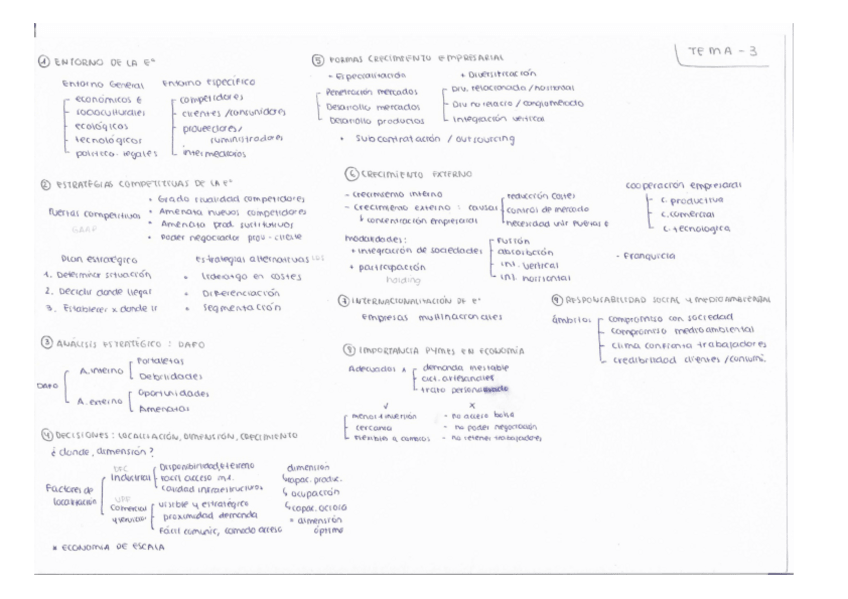 TEMA - 3
① ENTORNO DE LA eª
Entorno General
económicos e
socioculturales
ecológicos
tecnológicos
político-legales
Entorno específico
competidores
clientes / consumidores
proveedores /
suministradores
intermediarios
② ESTRATEGIAS COMPETITIVAS DE LA eª
Fuerzas competitivas
• Grado rivalidad competidores
• Amenaza nuevos competidores
• Amenaza prod. sustitutivos
• Poder negociador prov - cliente
Plan estratégico
1. Determinar situación
2. Decidir donde llegar
3. Establecer x donde ir
Estrategias alternativas
• Liderazgo en costes
• Diferenciación
• Segmentación
③ ANÁLISIS ESTRATÉGICO : DAFO
DAFO
A. interno
Fortalezas
Debilidades
A. externo
Oportunidades
Amenazas
④ DECISIONES : LOCALIZACIÓN, DIMENSIÓN, CRECIMIENTO
¿donde, dimensión?
Factores de
localización
Industrial
Disponibilidad terreno
fácil acceso m.t.
calidad infraestructuras
Comercial
y servicios
visible y estratégico
proximidad demanda
fácil comunic, comodo acceso
dimensión
↳ capac. produc.
↳ ocupación
↳ capac. ociosa
* dimensión
óptima
* ECONOMIA DE ESCALA
⑤ FORMAS CRECIMIENTO EMPRESARIAL
- Especialización
Penetración mercados
Desarrollo mercados
Desarrollo productos
+ Diversificación
Div. relacionada / horizontal
Div no relacio / conglomerado
Integración vertical
• Subcontratación / outsourcing
⑥ CRECIMIENTO EXTERNO
- Crecimiento interno
- Crecimiento externo : causas
↳ concentración empresarial
reducción costes
control de mercado
necesidad unir fuerzas e
modalidades:
• integración de sociedades
fusión
absorción
int. vertical
int. horizontal
• participación
holding
cooperación empresarial
c. productiva
c. comercial
c. tecnologica
- Franquicia
⑦ INTERNACIONALIZACIÓN DE eª
empresas multinacionales
⑧ IMPORTANCIA PYMES EN ECONOMÍA
Adecuadas x
demanda inestable
act. artesanales
trato personalizado
✓
menor inversión
cercanía
flexible a cambios
x
- no acceso bolsa
- no poder negociación
- no retener trabajadores
⑨ RESPONSABILIDAD SOCIAL Y MEDIOAMBIENTAL
ámbitos
compromiso con sociedad
compromiso medioambiental
clima confianza trabajadores
credibilidad clientes / consumi.